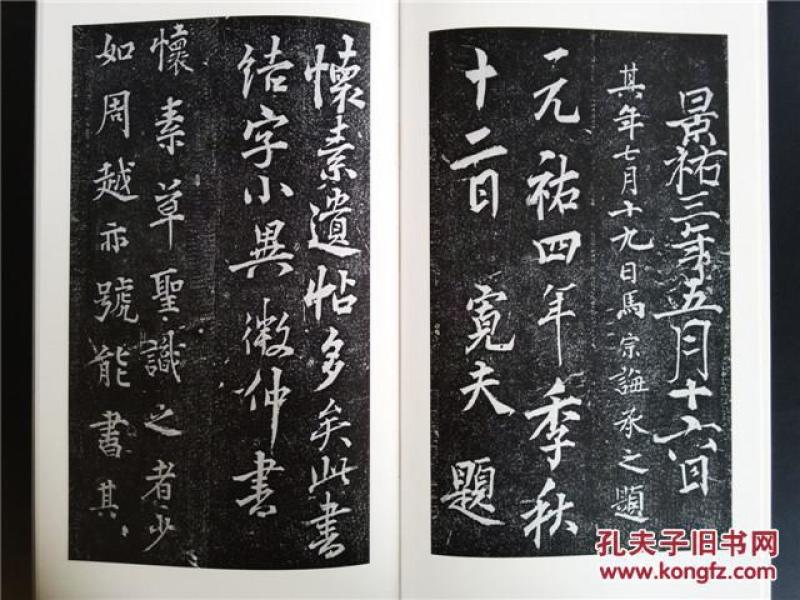 景祐三年五月十六日
其年七月十九日馬宗誨承之題
元祐四年季秋
十二日 寬夫題
懷素遺帖多矣此書
結字小異微仲書
懷素草聖識之者少
如周越亦號能書其
孔夫子旧书网
www.kongfz.com